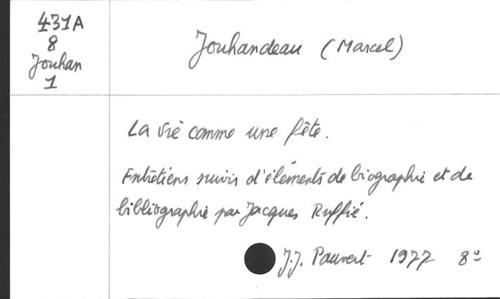 431A
8
Jouhan
1
Jouhandeau (Marcel)
La vie comme une fête.
Entretiens suivis d'éléments de biographie et de
bibliographie par Jacques Ruffié.
J.J. Pauvert 1977 8º